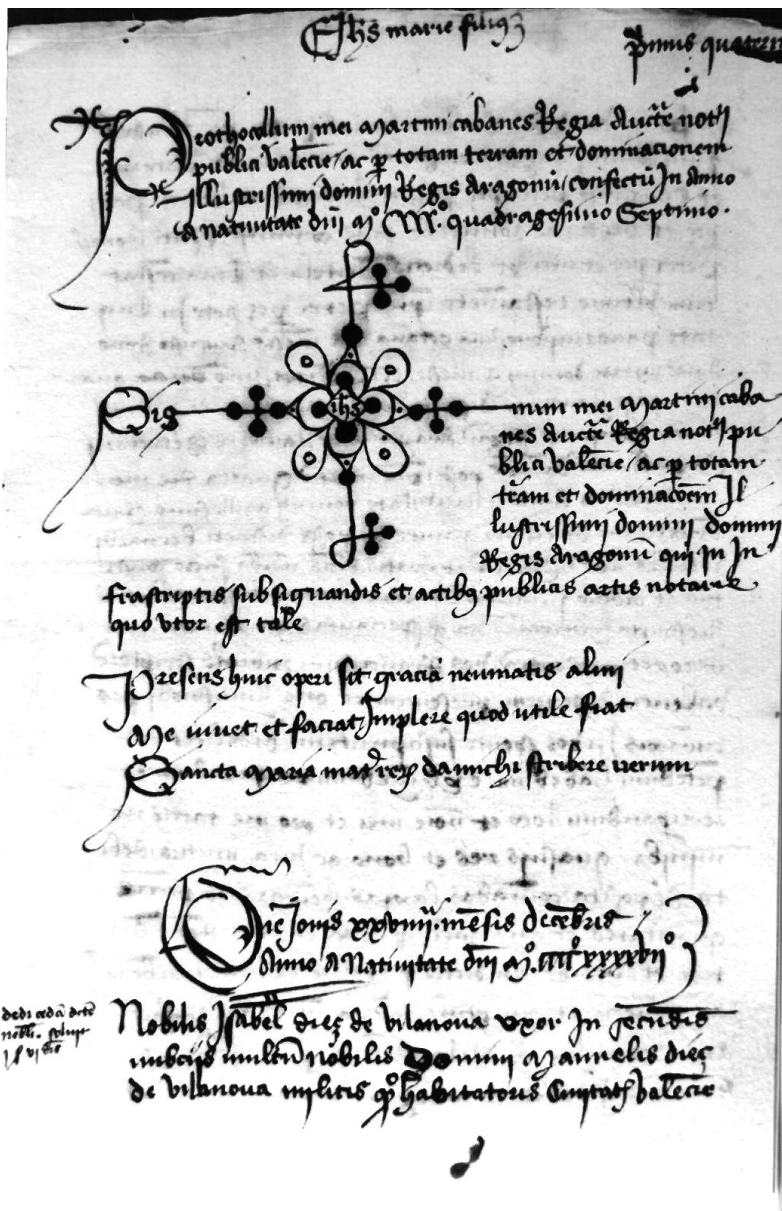 Jhs marie filius
Primus quatern
Prothocollum mei Martini cabanes Regia Aucte notij
publici Valencie / ac p totam terram et dominacionem
Illustrissimi domini Regis Aragonu / confectu In Anno
A nativitate dni Mº CCCCº quadragesimo Septimo .
Sig
ihs
num mei Martini caba
nes Aucte Regia notij pu
blici Valencie / ac p totam
tram et dominacoem Il
lustrissimi domini domini
Regis Aragonu qui in In
frascriptis subsignandis et actibus publicis artis notarie
quo utor est tale
Presens huic operi sit gracia neumatis almi
Me iuvet et faciat Implere quod utile fiat
Sancta Maria mat rerum da michi scribere verum
Die Jovis xxviiij . mensis Decebris
Anno A Nativitate dni Mº . CCCCº xxxxviiº
Nobilis Isabel dieç de vilanova uxor In secundis
nubciis multu nobilis Domini Manuelis dieç
de vilanova militis qº habitatoris Civitatis Valencie